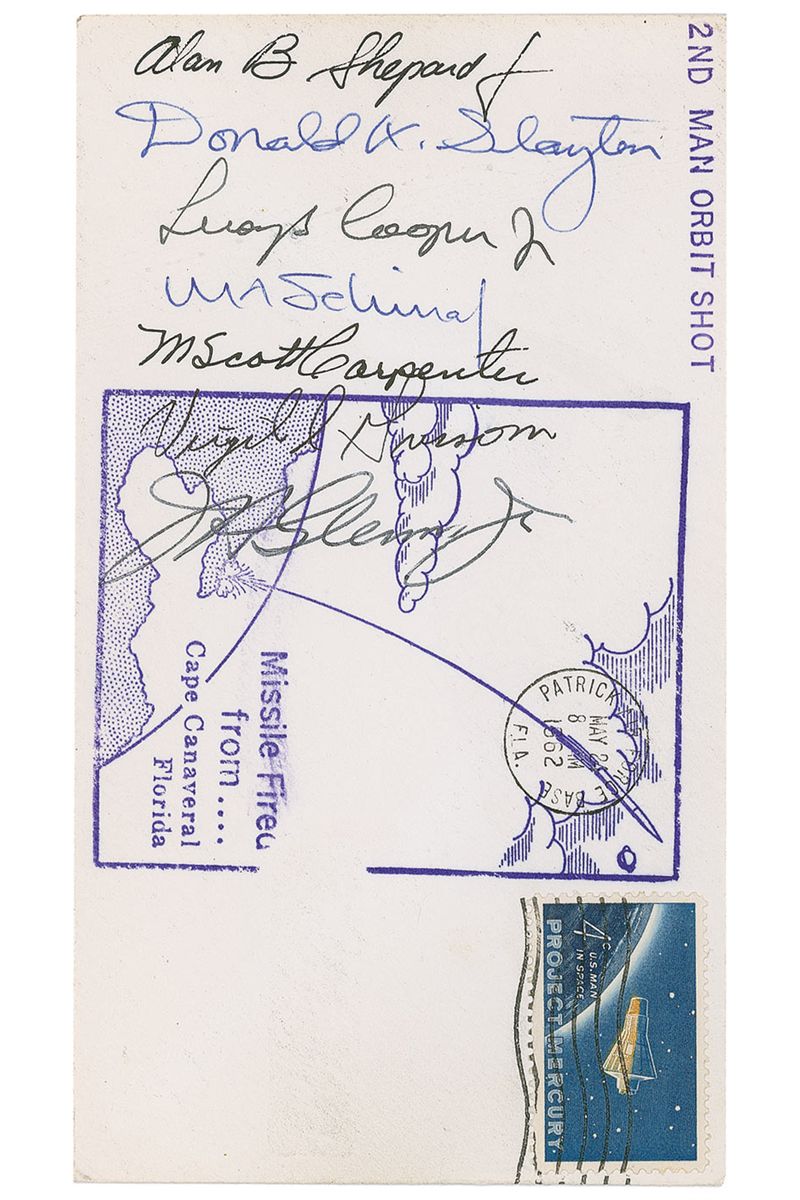 Alan B Shepard Jr
Donald K. Slayton
Leroy G Cooper Jr
W M Schirra
M Scott Carpenter
Virgil I Grissom
J H Glenn Jr
2ND MAN ORBIT SHOT
Missile Fired
from....
Cape Canaveral
Florida
PATRICK AIR FORCE BASE
MAY 24
8 AM
1962
FLA.
4c
U.S. MAN
IN SPACE
PROJECT MERCURY